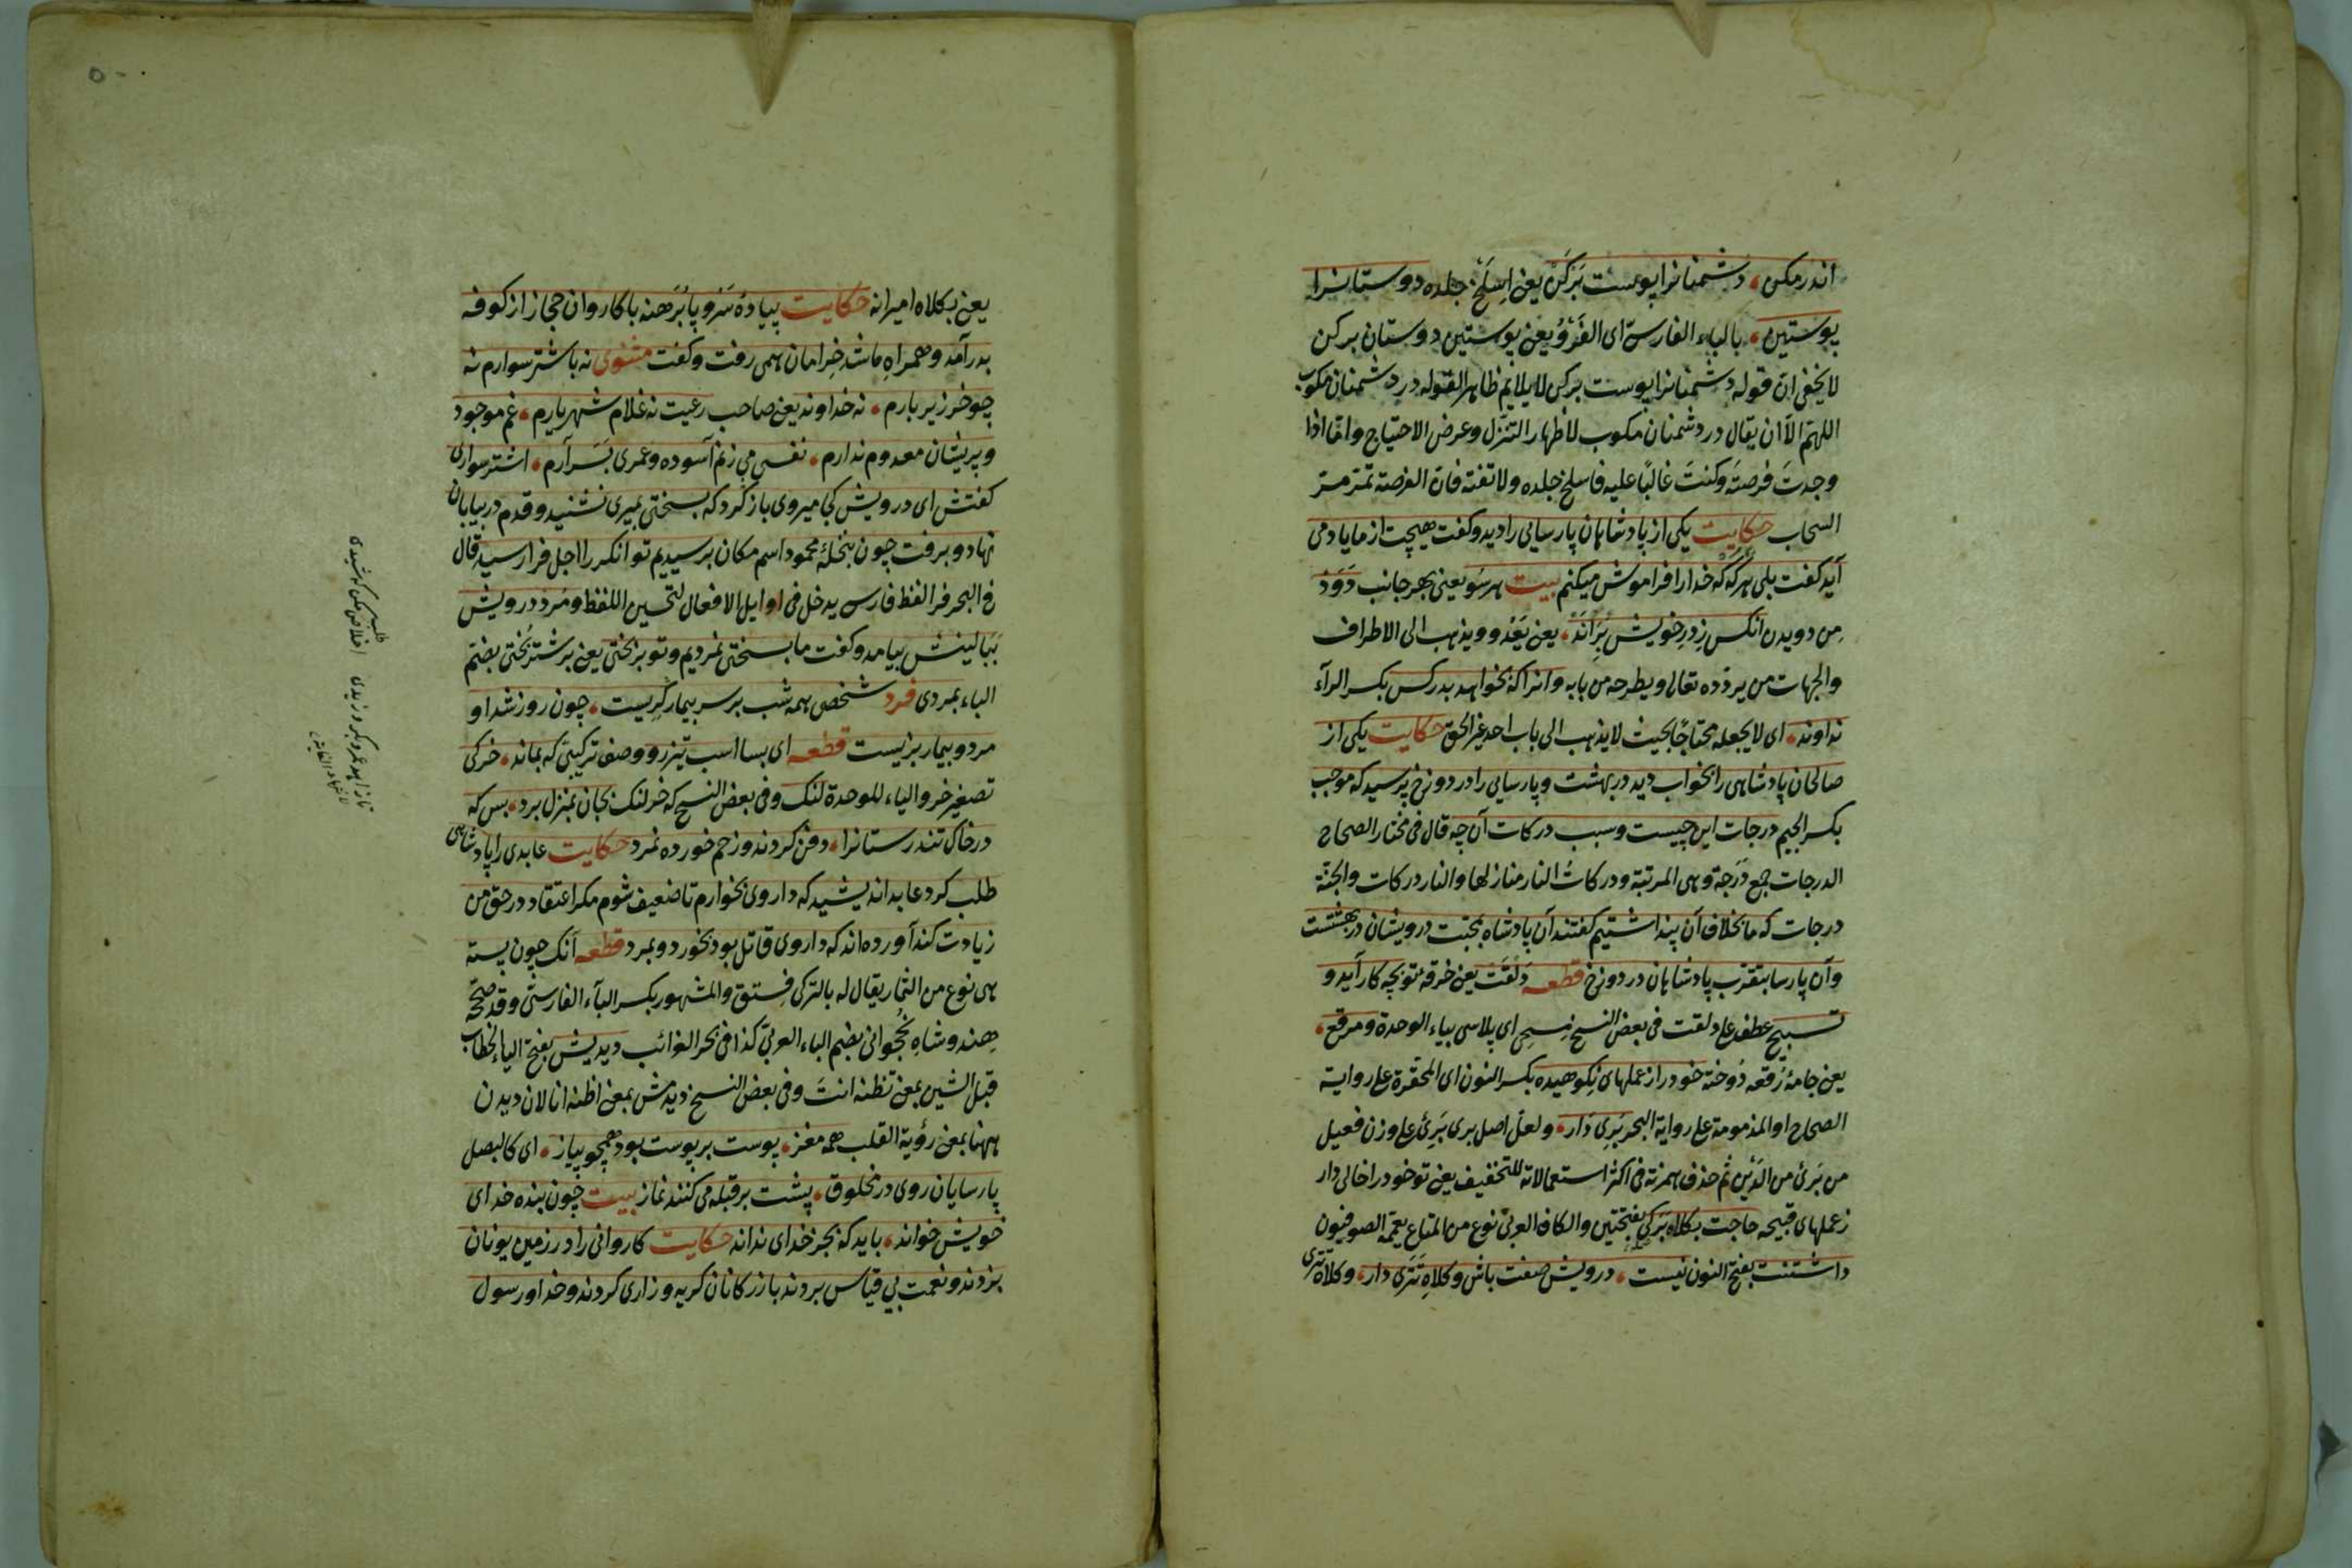 اندر مکن، دشمنانرا پوست بَرکَن یعنی اِسلَخ جلده دوستانرا
پوستین، بالباء الفارسیّ ای الفَرْوُ یعنی پوستین دوستان برکن
لا یخفی ان قوله دشمنانرا پوست برکن لا یلایم ظاهرا لقوله در دشمنان مکوب
اللهمّ الّا ان یقال در دشمنان مکوب لاظهار التنزّل وعرض الاحتیاج وامّا اذا
وجدتَ فرصتَه وکنتَ غالبًا علیه فاسلخ جلده ولا تفته فان الفرصة تمرّ مرّ
السحاب حکایت یکی از پادشاهان پارسایی را دید وکفت هیچت از ما یاد می
آید کفت بلی هرکَه که خدارا فراموش میکنم بیت هر سُو یعنی بهر جانب دَوَد
مِن دویدن آنکس زِ درِ خویش بِرانَد، یعنی یَعْدو ویذهب الی الاطراف
والجهات من یردّده تعالی ویطرحه من بابه وانرا که بخواهد بدر کس بکسر الرآء
نداوند، ای لا یجعله محتاجًا بحیث لا یذهب الی باب احد غیر الحق حکایت یکی از
صالحان پادشاهی را بخواب دید در بهشت وپارسایی را در دوزخ پرسید که موجب
بکسر الجیم درجات این چیست وسبب درکات آن چه قال فی مختار الصحاح
الدرجات جمع دَرَجة وهی المرتبة ودرکات النار منازلها والنار درکات والجنّة
درجات که ما بخلاف آن پنداشتیم کفتند آن پادشاه بمحبّت درویشان در بهشتست
وآن پارسا بتقرّب پادشاهان در دوزخ قطعه دَلقَت یعنی خرقهٔ تو بچه کار آید و
تسبیح عطف علی دلقت فی بعض النسخ مِسحی ای پلاسی بیاء الوحدة ومرقع،
یعنی جامهٔ رُقعه دُوخته خود را از عملهای نِکوهیده بکسر النون ای المحقّرة علی روایة
الصحاح او المذمومة علی روایة البحر بَرِی دار، ولعلّ اصل بری بَرِیٔ علی وزن فعیل
من بَرِئ من الدَیْن ثم حذف همزته فی اکثر استعمالاته للتخفیف یعنی تو خود را خالی دار
ز عملهای قبیحه حاجت بکلاه بَرَکی بفتحتین والکاف العربیّ نوع من المتاع یعمّمه الصوفیون
داشتنت بفتح النون نیست، درویش صفت باش وکلاهِ تَتَری دار، وکلاه تتری
یعنی بکلاه امیرانه حکایت پیادهٔ سَر و پا بُرَهنه با کاروان حجاز از کوفه
بدر آمد وهمراهِ ما شد خرامان همی رفت وکفت مثنوی نه باشتر سوارم نه
چو خر زیر بارم، نه خداوند یعنی صاحب رعیت نه غلام شهریارم، غم موجود
وپریشان معدوم ندارم، نفسی می زنم آسوده وعمری بَسَر آرم، اشتر سواری
کفتش ای درویش کجا میروی باز کرد که بسختی بمیری نشنید وقدم در بیابان
نهاد وبرفت چون بنخلهٔ محمود اسم مکان برسیدیم توانکررا اجل فرا رسید قال
فی البحر فرا لفظ فارسی یدخل فی اوایل الافعال لتحسین اللفظ ومُرد درویش
بَبالینش بیامد وکفت ما بسختی نمردیم وتو بر بختی یعنی بر شتر بُختی بضمّ
الباء بمردی فرد شخصی همه شب بر سر بیمار کِریست، چون روز شد او
مرد وبیمار بزیست قطعه ای بسا اسب تیزرو وصف ترکیبی که بماند، خرکی
تصغیر خر والیاء للوحدة لنک وفی بعض النسخ که خر لنک بجان بمنزل برد، بس که
در خاک تندرستانرا، دفن کردند وزخم خورده نمرد حکایت عابدی را پادشاهی
طلب کرد عابد اندیشید که داروی بخورم تا ضعیف شوم مکر اعتقاد در حق من
زیادت کند آورده اند که داروی قاتل بود بخورد وبمرد قطعه آنک چون پسته
هی نوع من الثمار یقال له بالترکی فِستق والمشهور بکسر البآء الفارسیّ وقد صحّحه
هِندو شاهِ نُخجوانی بضم الباء العربیّ کذا فی بحر الغرائب دیدیش بفتح الیاء لخطاب
قبل الشین بمعنی تظنه انتَ وفی بعض النسخ دیدمش بمعنی اظنه انا لان دیدن
ههنا بمعنی رؤیة القلب همه مغز، پوست بر پوست بود همچو پیاز، ای کالبصل
پارسایان روی در مخلوق، پشت بر قبله می کنند نماز بیت چون بنده خدای
خویش خواند، باید که بجز خدای نداند حکایت کاروانی را در زمین یونان
بزدند ونعمت بی قیاس بردند بازرکانان کریه وزاری کردند وخدا ورسول